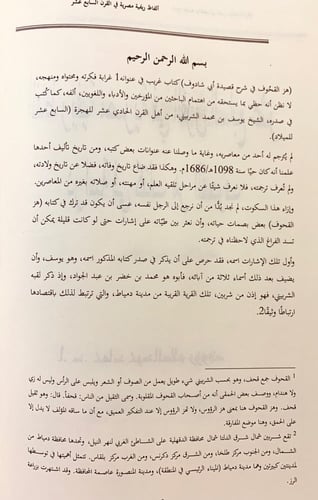 ألفاظ ريفية مصرية في القرن السابع عشر
بسم الله الرحمن الرحيم
(هز القحُوف في شرح قصيدة أبي شادوف) كتاب غريب في عنوانه1 غرابة فكرته ومحتواه ومنهجه،
لا نظن أنه حظي بما يستحقه من اهتمام الباحثين من المؤرخين والأدباء واللغويين، ألفه، كما كُتب
في صدره، الشيخ يوسف بن محمد الشربيني، من أهل القرن الحادي عشر للهجرة (السابع عشر
للميلاد).
لم يُترجم له أحد من معاصريه، وغاية ما وصلنا عنه عنوانات بعض كتبه، ومن تاريخ تأليف أحدها
علمنا أنه كان حيًا سنة 1098هـ/1686م. وهكذا فقد ضاع تاريخ وفاته، فضلا عن تاريخ ولادته،
ولم تُعرف ترجمته، فلا نعرف شيئًا عن مراحل تلقيه العلم، أو مهنته، أو صلاته بغيره من المعاصرين.
وإزاء هذا السكوت، لم نجد بُدًّا من أن نرجع إلى الرجل نفسه، عسى أن يكون قد ترك في كتابه (هز
القحوف) بعض بصمات حياته، وأن نعثر بين طيّاته على إشارات حتى لو كانت قليلة يمكن أن
تسد الفراغ الذي لاحظناه في ترجمته.
وأول تلك الإشارات اسمه، فقد حرص على أن يذكر في صدر كتابه المذكور اسمه، وهو يوسف، وأن
يضيف بعد ذلك أسماء ثلاثة من آبائه، فأبوه هو محمد بن خضر بن عبد الجواد، وإذ ذكر لقبه
الشربيني، فهو إذن من شربين، تلك القرية القريبة من مدينة دمياط، والتي ترتبط لذلك باقتصادها
ارتباطًا وثيقًا2.
1 القحوف جمع قحف، وهو بحسب الشربيني شيء طويل يعمل من الصوف أو الشعر ويلبس على الرأس وليس له زي
ولا هندام، ووصف بعض الحمقى أنه من أصحاب القحوف المقلوبة. وسمى الثقيل من الناس: قحافًا. قال: وهو ثقيل
قحف. وهز القحوف هنا بمعنى هز الرؤوس، ولا تهز الرؤوس إلا عند التفكير العميق، مع أن ما ساقه المؤلف لا يدل إلا
على الحمق، وهنا موضع المفارقة.
2 تقع شربين شمال شرق الدلتا شمال محافظة الدقهلية على الشاطئ الغربي لنهر النيل، وتحدها محافظة دمياط من
الشمال، ومن الجنوب مركز طلخا، ومن الشرق مركز دكرنس، ومن الغرب مركز بلقاس. تتمثل أهميتها في توسطها
لمدينتين كبيرتين وهما مدينة دمياط (الميناء الرئيسي في المنطقة)، ومدينة المنصورة عاصمة المحافظة. وقد اشتهرت بزراعة
الرز.